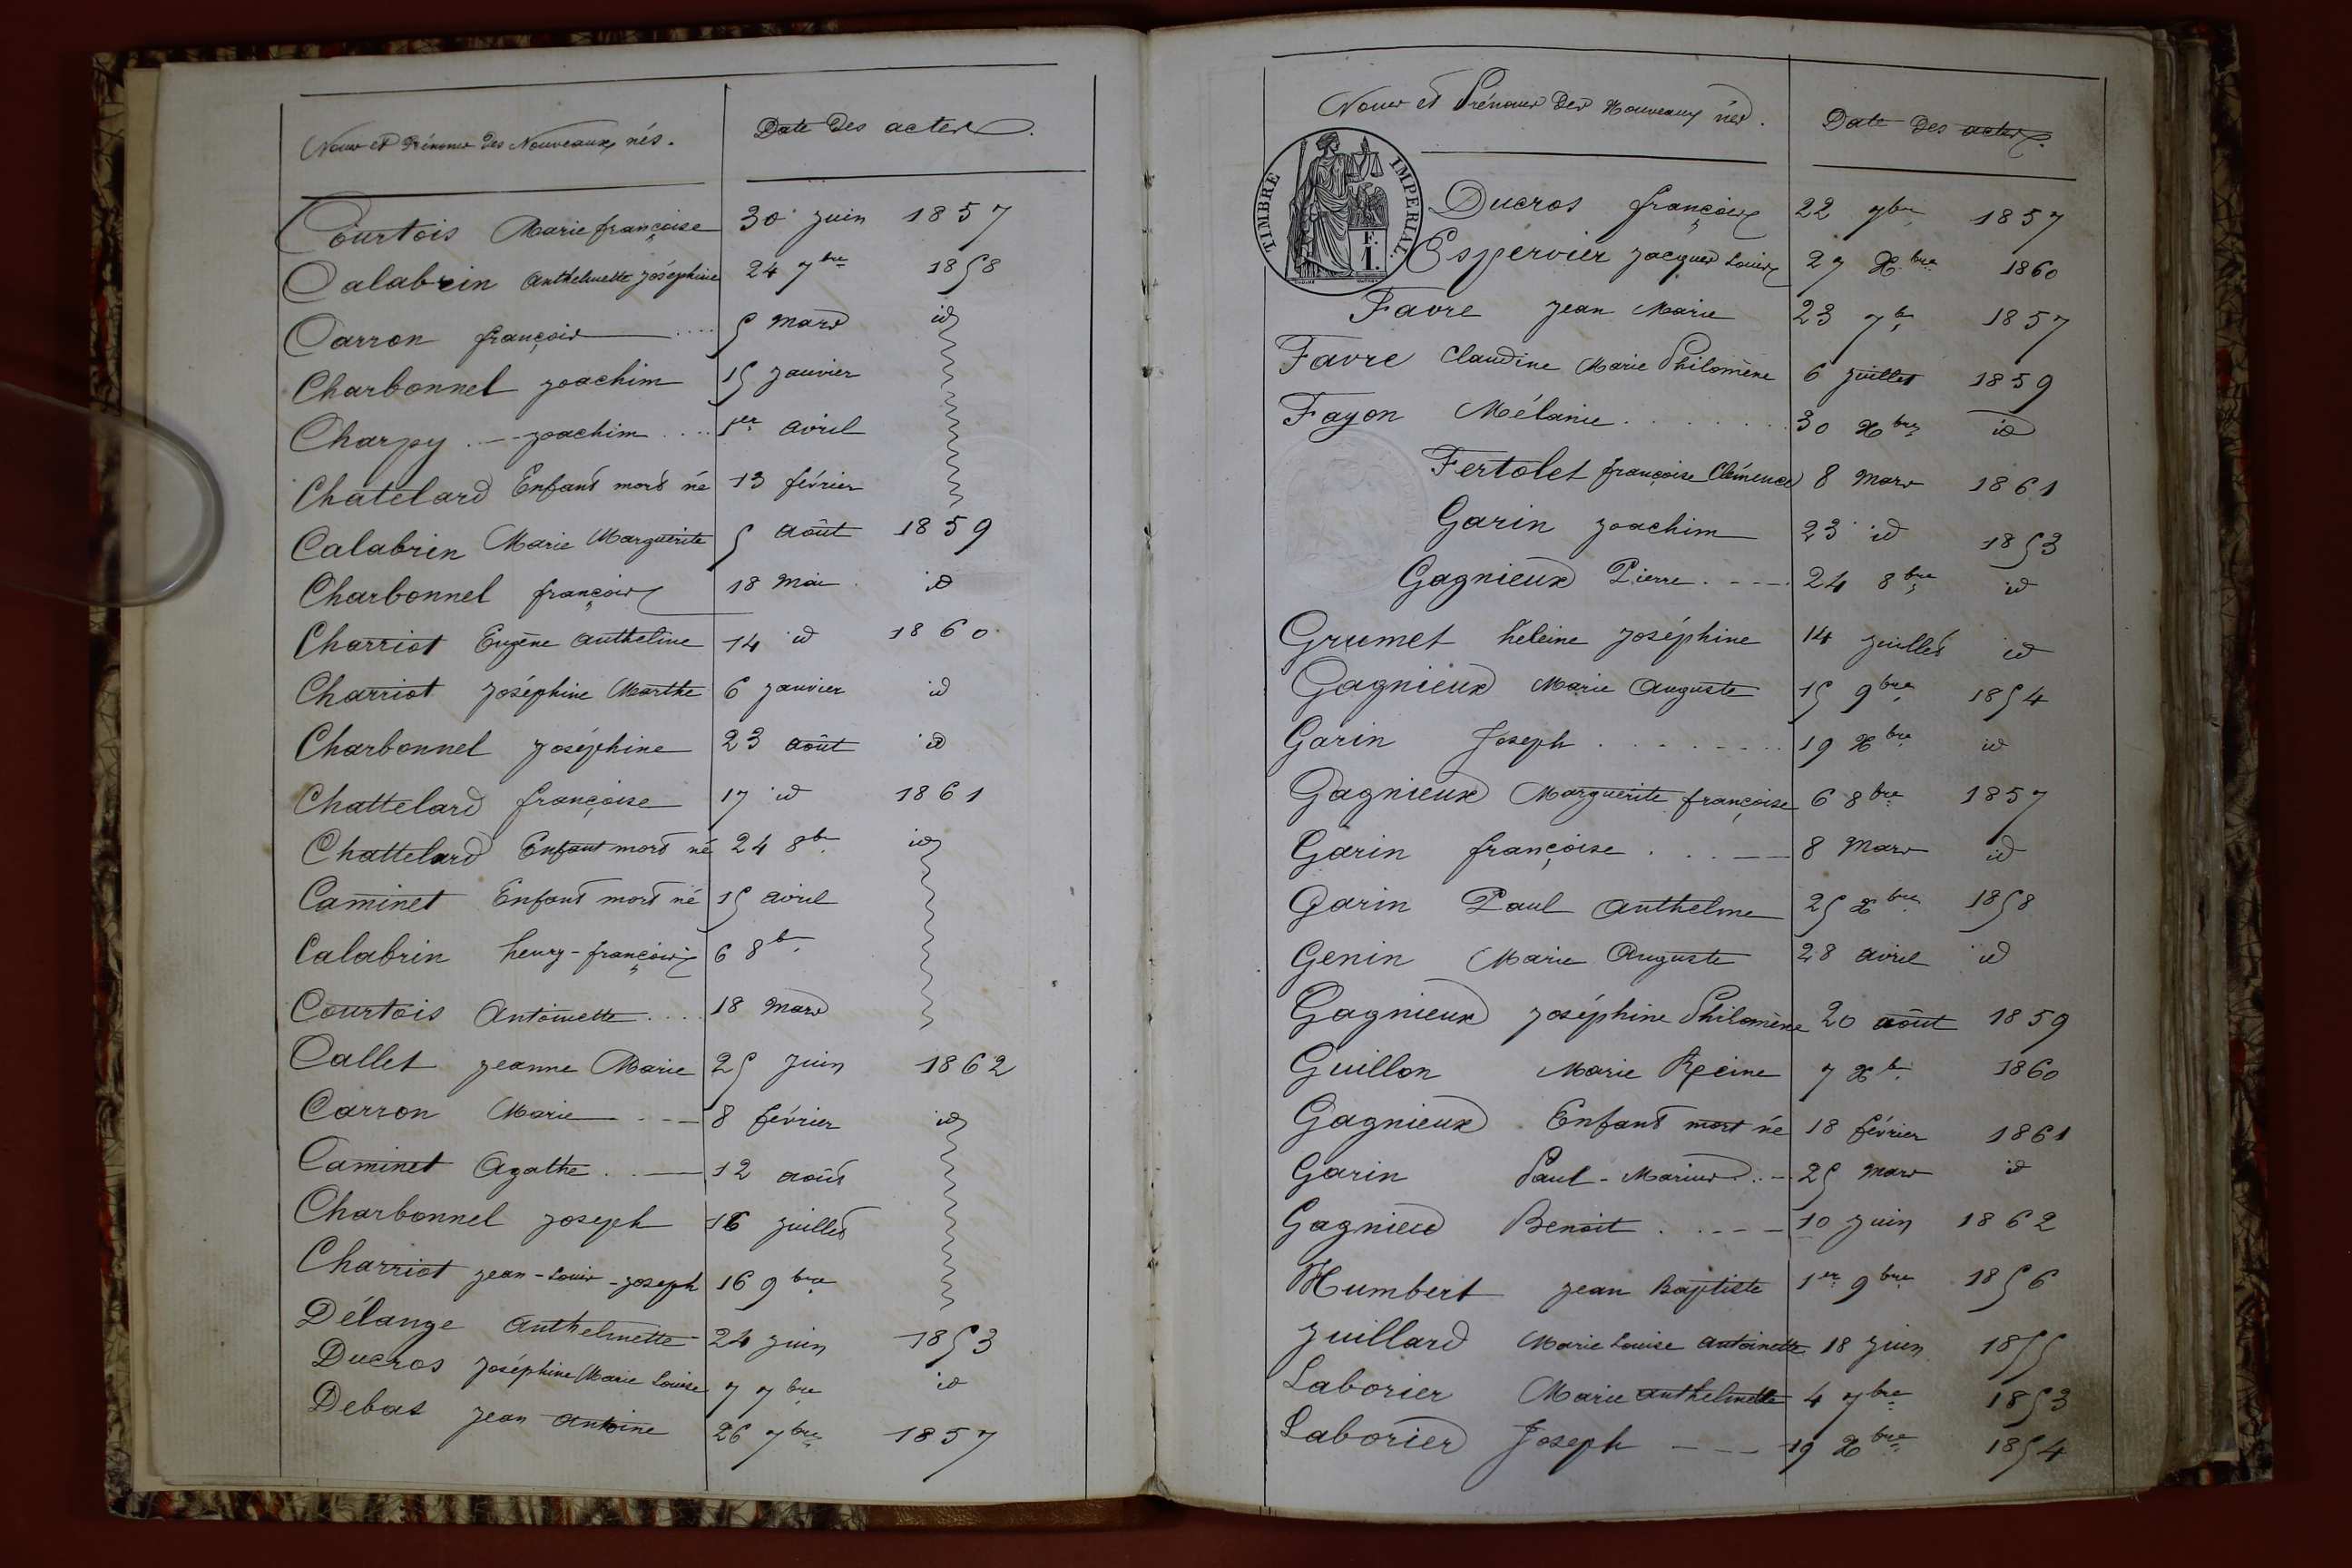 Noms et Prénoms des Nouveaux nés. Date des actes.
Courtois Marie françoise 30 juin 1857
Calabrin Anthelmette Joséphine 24 7bre 1858
Carron françois 5 mars id
Charbonnel joachim 15 janvier
Charpy joachim 1er avril
Chatelard Enfant mort né 13 février
Calabrin Marie Marguerite 5 août 1859
Charbonnel françois 18 mai id
Charriot Eugène Anthelme 14 id 1860
Charriot joséphine Marthe 6 janvier id
Charbonnel joséphine 23 août id
Chattelard françoise 17 id 1861
Chattelard Enfant mort né 24 8bre id
Caminet Enfant mort né 15 avril
Calabrin henry-françois 6 8bre
Courtois Antoinette 18 mars
Callet jeanne Marie 25 juin 1862
Carron Marie 8 février id
Caminet Agathe 12 août
Charbonnel joseph 16 juillet
Charriot jean-Louis-joseph 16 9bre
Délange Anthelmette 24 juin 1853
Ducros joséphine Marie Louise 7 7bre id
Debat jean Antoine 26 7bre 1857
Noms et Prénoms des Nouveaux nés. Date des actes.
TIMBRE IMPERIAL.
F.
I.
Ducros françois 22 7bre 1857
Espervier jacques Louis 27 Xbre 1860
Favre jean Marie 23 7bre 1857
Favre Claudine Marie Philomène 6 juillet 1859
Fayon Mélanie 30 Xbre id
Fertolet françoise Clémence 8 mars 1861
Garin joachim 23 id 1853
Gagnieux Pierre 24 8bre id
Grumet héleine joséphine 14 juillet id
Gagnieux Marie Auguste 15 9bre 1854
Garin Joseph 19 Xbre id
Gagnieux Marguerite françoise 6 8bre 1857
Garin françoise 8 mars id
Garin Paul Anthelme 25 Xbre 1858
Genin Marie Auguste 28 avril id
Gagnieux joséphine Philomène 20 août 1859
Guillon Marie Reine 7 Xbre 1860
Gagnieux Enfant mort né 18 février 1861
Garin Paul-Marius 25 mars id
Gagnieu Benoit 10 juin 1862
Humbert jean Baptiste 1er 9bre 1856
Juillard Marie Louise Antoinette 18 juin 1855
Laborier Marie Anthelmette 4 7bre 1853
Laborier Joseph 19 Xbre 1854